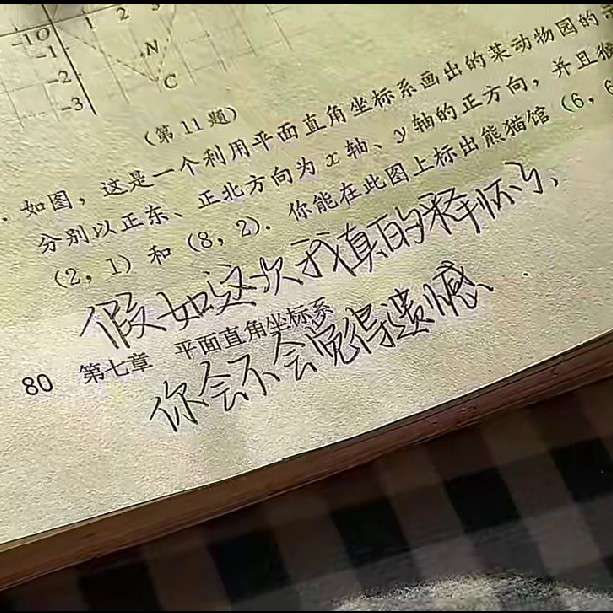 -1 O 1 2 3
-1
N
-2
C
-3
(第 11 题)
. 如图，这是一个利用平面直角坐标系画出的某动物园的
分别以正东、正北方向为 x 轴、y 轴的正方向，并且
(2，1) 和 (8，2). 你能在此图上标出熊猫馆 (6，6
假如这次我真的释怀了、
80 第七章 平面直角坐标系
你会不会觉得遗憾、